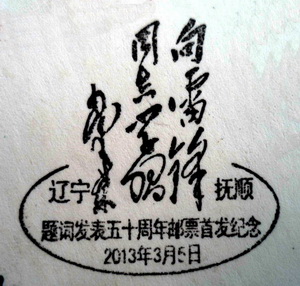 向雷锋
同志学习
毛泽东
辽宁 抚顺
题词发表五十周年邮票首发纪念
2013年3月5日